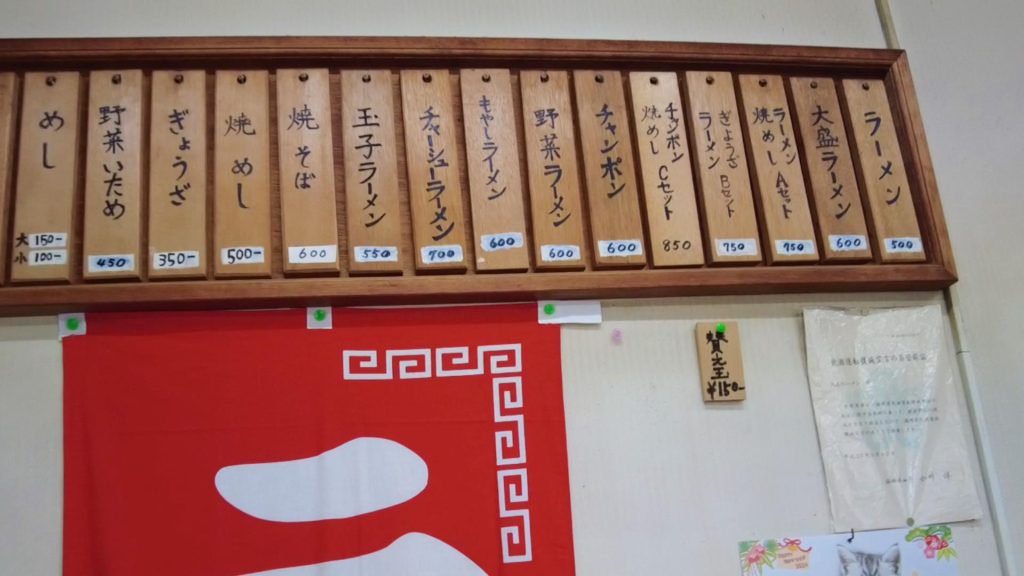 ラーメン
500
大盛ラーメン
600
ラーメン
焼めし Aセット
750
ぎょうざ
ラーメン Bセット
750
チャンポン
焼めし Cセット
850
チャンポン
600
野菜ラーメン
600
もやしラーメン
600
チャーシューラーメン
700
玉子ラーメン
550
焼そば
600
焼めし
500-
ぎょうざ
350-
野菜いため
450
めし
大 150-
小 100-
替え玉
¥150-